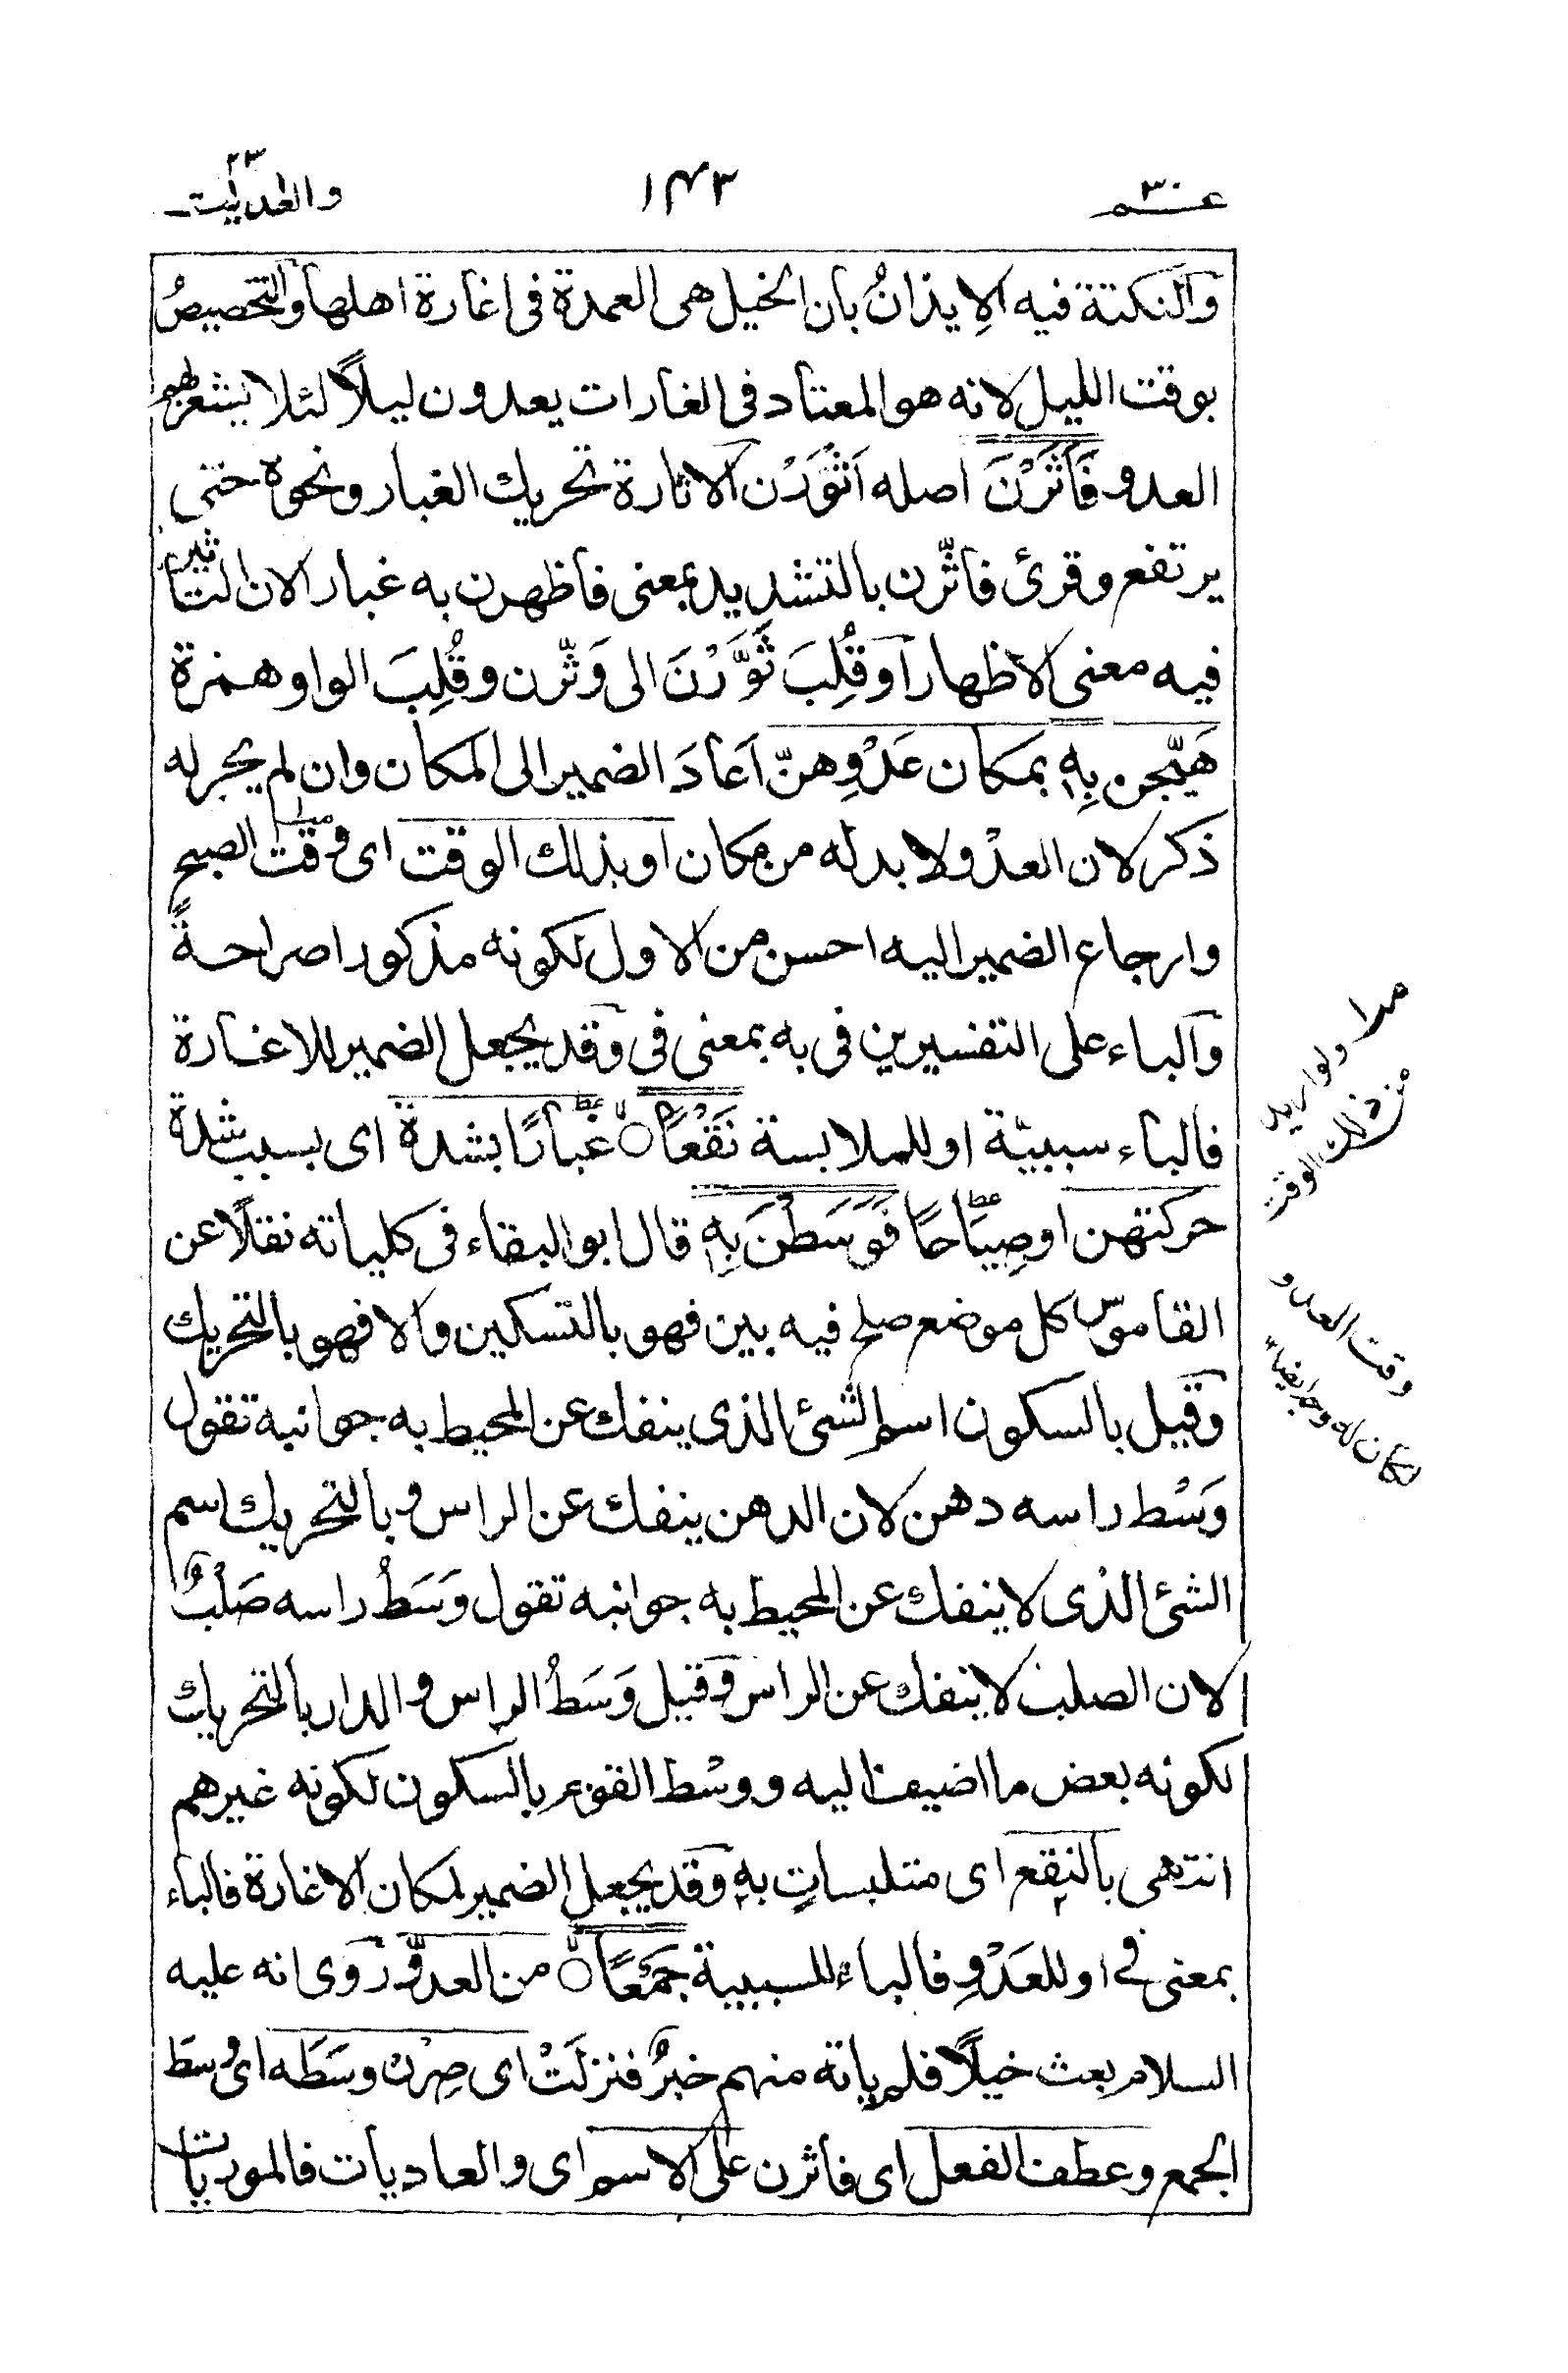 عم ٣٠
١٤٣
والعديت
والنكتة فيه الاِيذانُ بان الخيل هى العمدة فى اغارة اهلها والتخصيصُ
بوقت الليل لانه هو المعتاد فى الغارات يعدون ليلًا لئلا يشعر بهم
العدو فَاَثَرْنَ اصله اَثْوَرْن الاثارة تحريك الغبار ونحوه حتى
يرتفع وقرئ فاثّرن بالتشديد بمعنى فاظهرن به غبار الان التاثير
فيه معنى الاظهار اَو قُلِبَ ثَوَّرْنَ الى وَثّرن وقُلِبَ الواو همزة
هَيّجن بِهٖ بمكان عَدْوِهنّ اَعادَ الضمير الى المكان وان لم يجر له
ذكر لان العدْو لا بد له من مكان او بذلك الوقت اى وقت الصبح
وارجاع الضمير اليه احسن من الاول لكونه مذكورا صراحةً
والباء على التفسيرين فى به بمعنى فى وقد يجعل الضمير للاغارة
فالباء سببيّة او للملابسة نَقْعًا غبارًا بشدة اى بسبب شدة
حركتهن او صِيَاحًا فَوَسَطْنَ بِهٖ قال ابو البقاء فى كلياته نقلًا عن
القاموس كل موضع صلح فيه بين فهو بالتسكين والا فهو بالتحريك
وقيل بالسكون اسم الشئ الذى ينفك عن المحيط به جوانبه تقول
وَسْط راسه دهن لان الدهن ينفك عن الراس و بالتحريك اسم
الشئ الذى لا ينفك عن المحيط به جوانبه تقول وَسَطُ راسه صَلْبٌ
لان الصلب لا ينفك عن الراس وقيل وَسَطُ الراس و الدار بالتحريك
لكونه بعض ما اضيف اليه و وسْط القوم بالسكون لكونه غيرهم
انتهى بالنقع اى متلبساتٍ به وقد يجعل الضمير لمكان الاغارة فالباء
بمعنى فى او للعَدْوِ فالباء للسببية جَمْعًا من العدوّ روى انه عليه
السلام بعث خيلًا فلم ياته منهم خبرٌ فنزلَتْ اى صِرْن وسَطَه اى وسط
الجمع وعطف الفعل اى فاثرن على الاسم اى والعاديات فالموريات
ولو اريد
من ذلك الوقت
وقت العدو
لكان له وجه ايضا